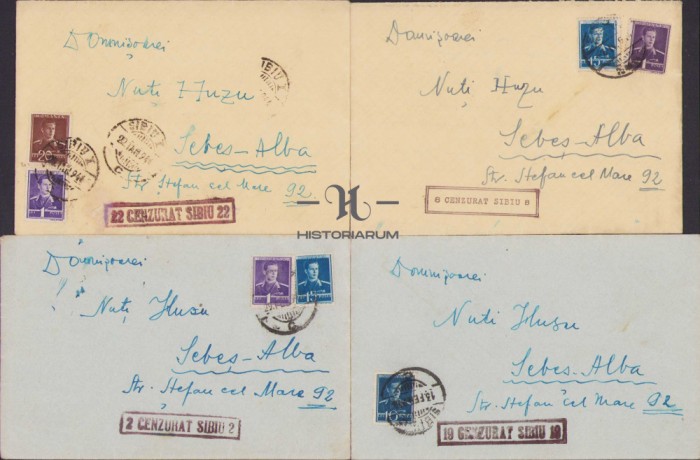 Domnișoarei
Nuți Huzu
Sebeș-Alba
Str. Ștefan cel Mare 92
SIBIU
22 CENZURAT SIBIU 22
Domnișoarei
Nuți Huzu
Sebeș-Alba
Str. Ștefan cel Mare 92
8 CENZURAT SIBIU 8
H
HISTORIARUM
Domnișoarei
Nuți Huzu
Sebeș-Alba
Str. Ștefan cel Mare 92
2 CENZURAT SIBIU 2
Domnișoarei
Nuti Huzu
Sebeș-Alba
Str. Ștefan cel Mare 92
19 CENZURAT SIBIU 19